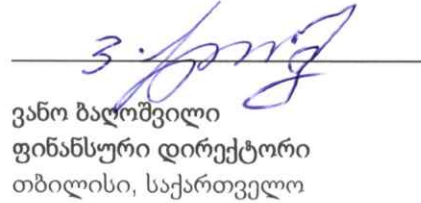 ვანო ბაღოშვილი
ფინანსური დირექტორი
თბილისი, საქართველო